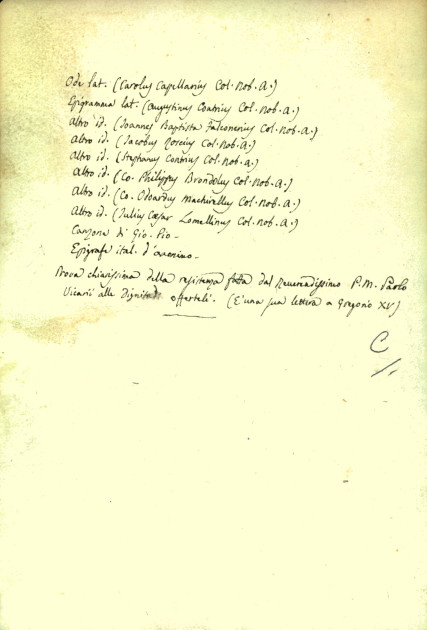 Ode lat. (Carolus Capellarius Col. Nob. A.)
Epigramma lat. (Augustinus Contrius Col. Nob. A.)
Altro id. (Joannes Baptista Falconerius Col. Nob. A.)
Altro id. (Jacobus Col. Nob. A.)
Altro id. (Stephanus Contrius Col. Nob. A.)
Altro id. (Co. Philippus Brondolus Col. Nob. A.)
Altro id. (Co. Odoardus Machirellus Col. Nob. A.)
Altro id. (Julius Cæsar Lomellinus Col. Nob. A.)
Canzone di Gio. Pio.
Epigrafe ital. d'
Prova chiarissima della resistenza fatta dal Reverendissimo P. M. Paolo
Vicarii alle Dignità offerteli. (È una sua lettera a Gregorio XV)
C